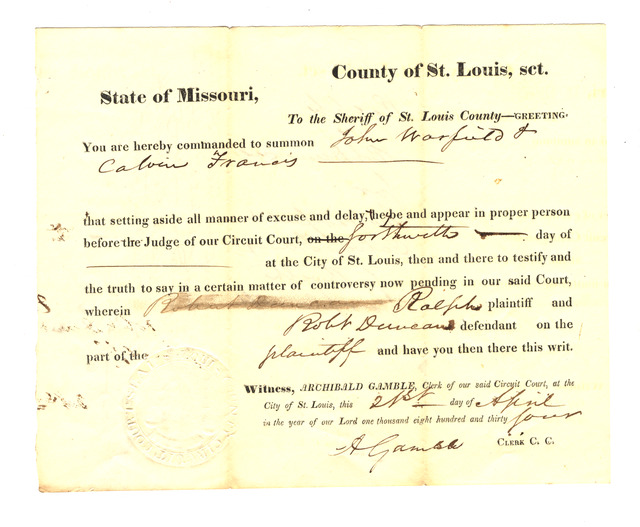 County of St. Louis, sct.
State of Missouri,
To the Sheriff of St. Louis County—GREETING.
You are hereby commanded to summon John Warfield &
Calvin Francis
that setting aside all manner of excuse and delay, they be and appear in proper person
before the Judge of our Circuit Court, on the forthwith day of
at the City of St. Louis, then and there to testify and
the truth to say in a certain matter of controversy now pending in our said Court,
wherein Robert Duncan Ralph plaintiff and
Robt Duncan defendant on the
part of the plaintiff and have you then there this writ.
Witness, ARCHIBALD GAMBLE, Clerk of our said Circuit Court, at the
City of St. Louis, this 21st day of April
in the year of our Lord one thousand eight hundred and thirty four
A Gamble CLERK C. C.